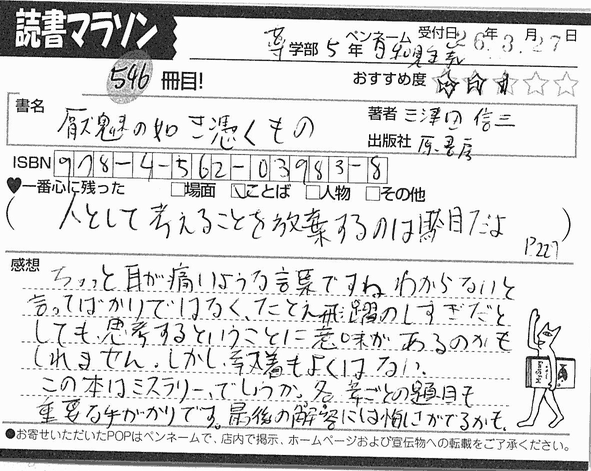 読書マラソン
学部 5年 ペンネーム 受付日 26年3月27日
546 冊目!
おすすめ度
書名
厭魅の如き憑くもの
著者 三津田 信三
出版社 原書房
ISBN 978-4-562-03983-8
♥一番心に残った □場面 □ことば □人物 □その他
(人として考えることを放棄するのは駄目だよ P227)
感想
ちょっと耳が痛いような言葉ですね。わからないと
言ってばかりではなく、たとえ飛躍のしすぎだと
しても、思考するということに意味があるのかも
しれません。しかし、執着もよくはない。
この本はミステリー、でしょうか。各章ごとの題目も
重要な手がかりです。最後の解答には悔しさがでるかも。
●お寄せいただいたPOPはペンネームで、店内で掲示、ホームページおよび宣伝物への転載をご了承ください。